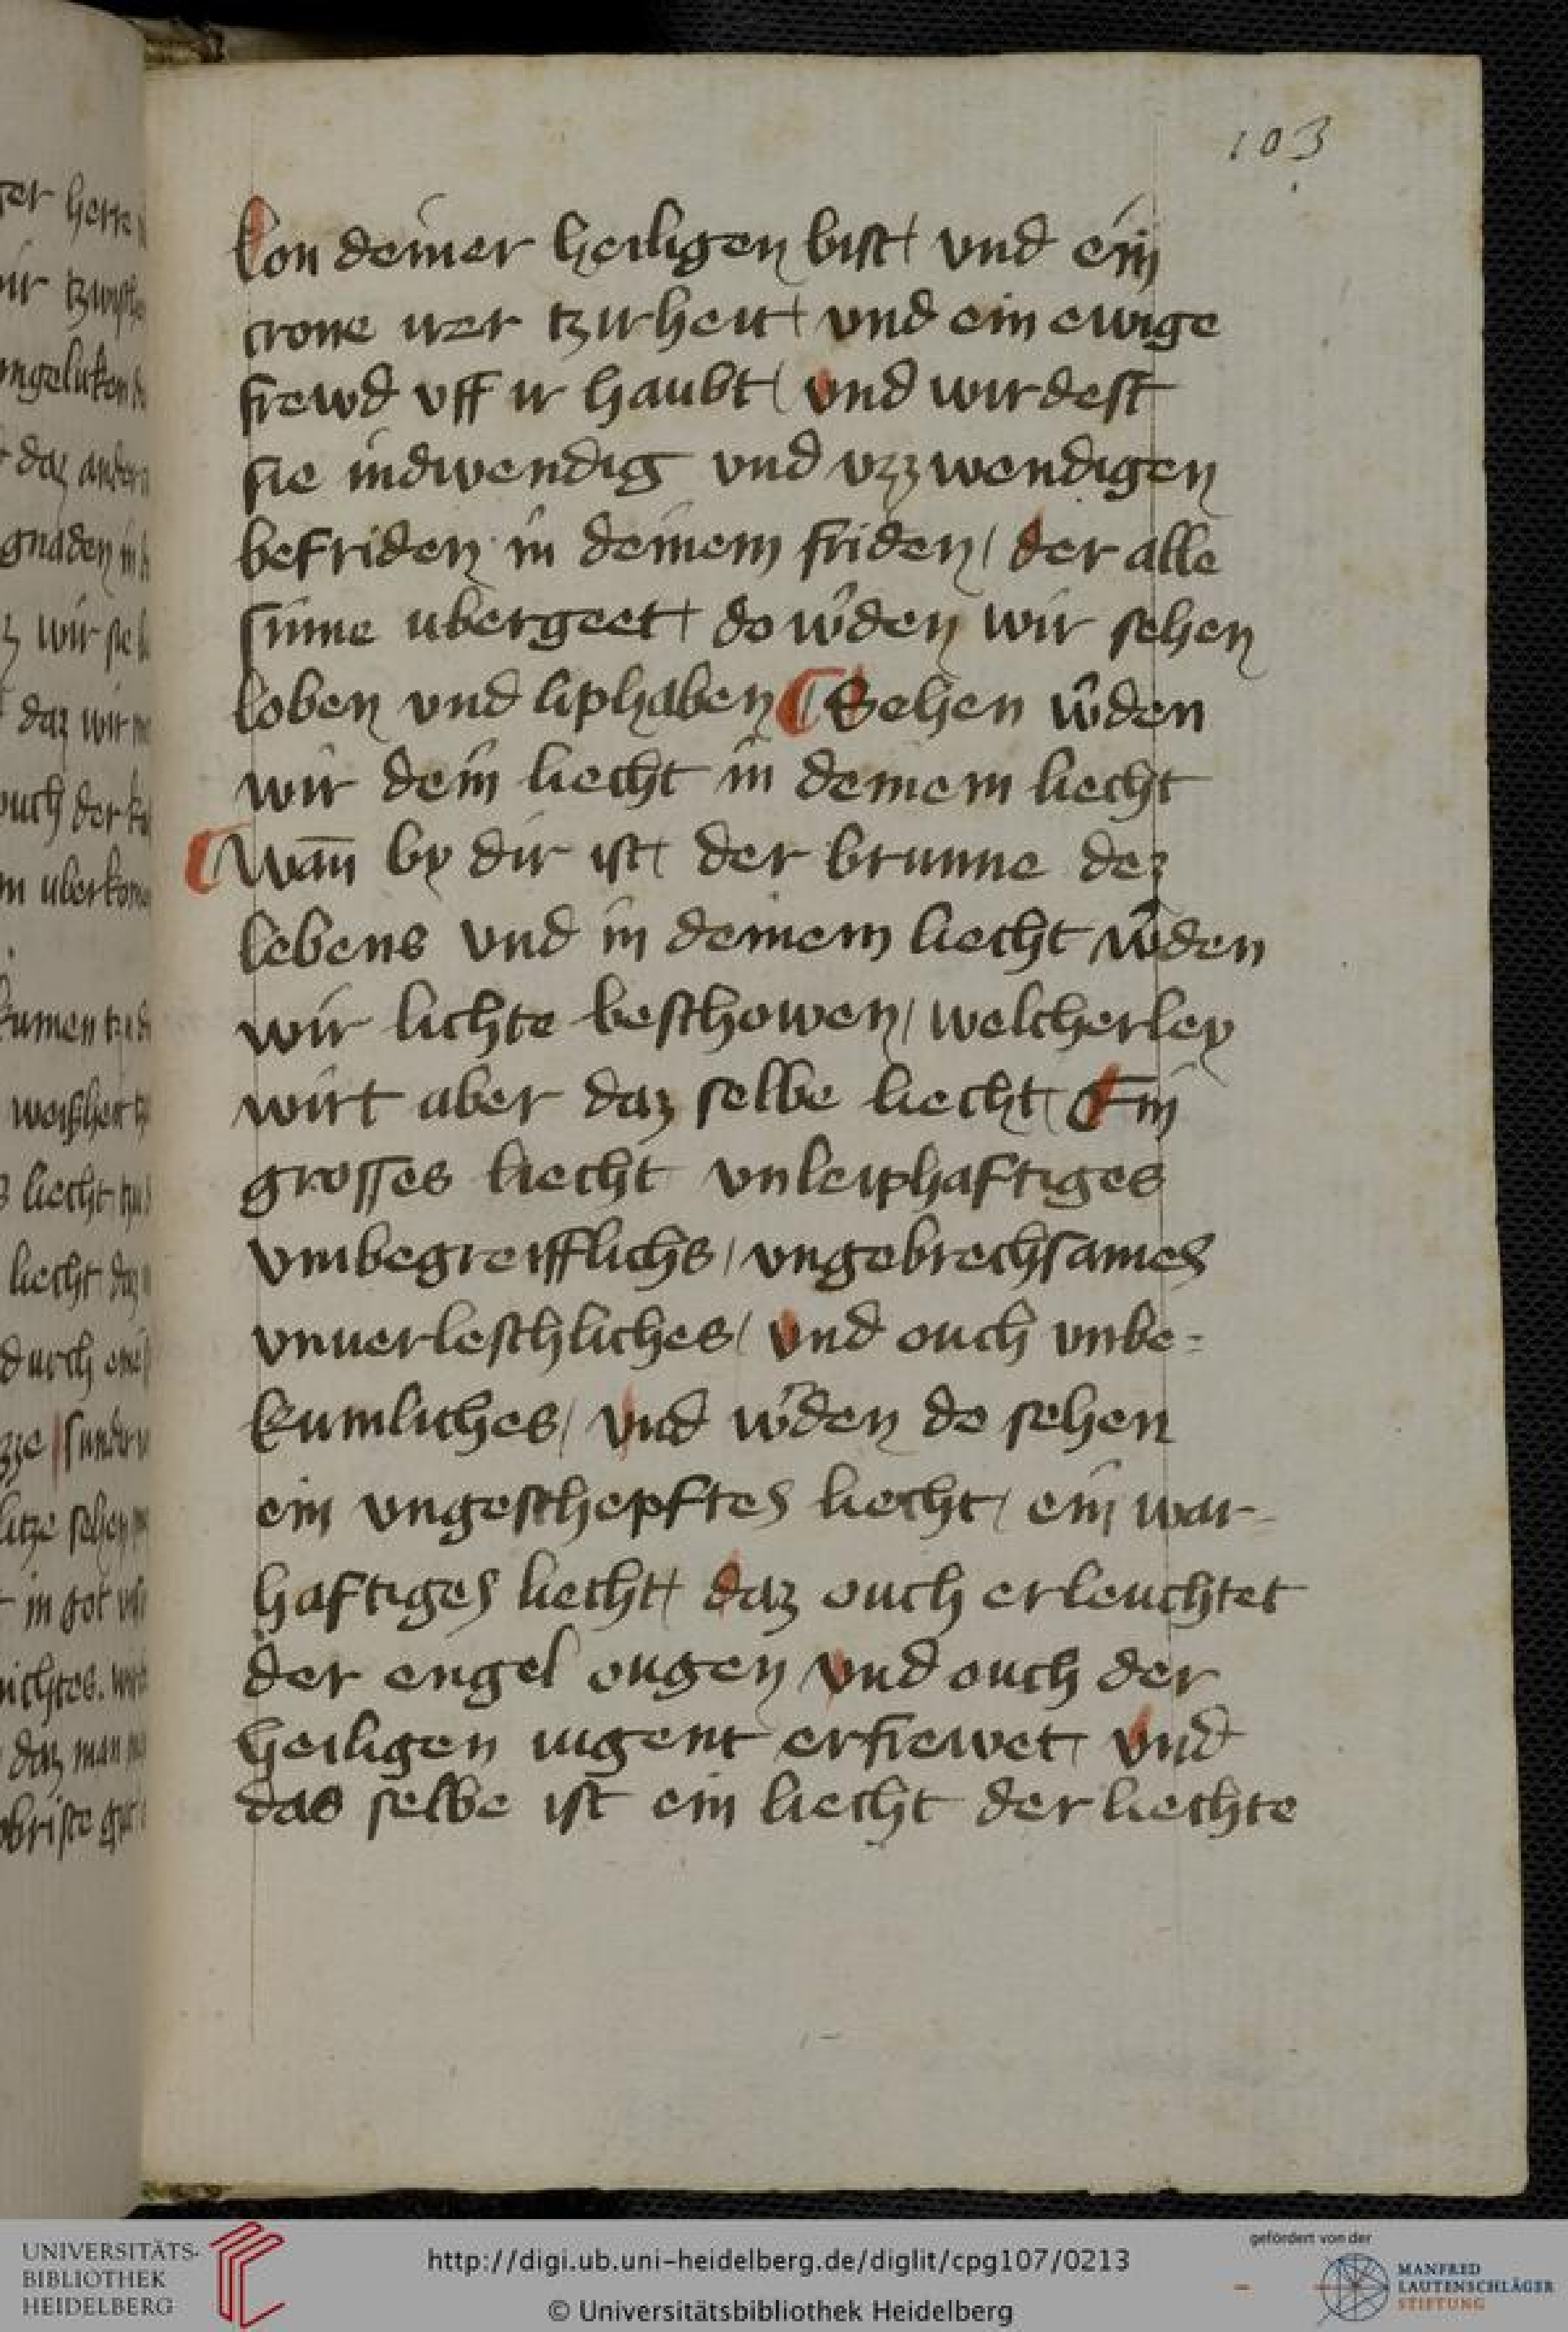 103
lon deiner heiligen bist / vnd ein
crone irer tzirheit / vnd ein ewige
frewd vff ir haubt / vnd wirdest
sie indwendig vnd vzzwendigen
befriden in deinem friden / der alle
sinne ubergeet / do w̉den wir sehen
loben vnd liphaben ¶ Sehen w̉den
wir dein liecht in deinem liecht
¶ Wan̄ by dir ist / der brunne dez
lebens vnd in deinem liecht w̉den
wir lichte beschowen / welcherley
wirt aber daz selbe liecht / Ein
grosses liecht vnleiphaftiges
vmbegreifflichs / vngebrechsames
vnuerleschliches / vnd ouch vnbe=
kumliches / vnd w̉den do sehen
ein vngeschepftes liecht / ein war-
haftiges liecht / daz ouch erleuchtet
der engel ougen vnd ouch der
heiligen iugent erfrewet / vnd
das selbe ist ein liecht der liechte
UNIVERSITÄTS-
BIBLIOTHEK
HEIDELBERG
http://digi.ub.uni-heidelberg.de/diglit/cpg107/0213
© Universitätsbibliothek Heidelberg
gefördert von der
MANFRED
LAUTENSCHLÄGER
STIFTUNG